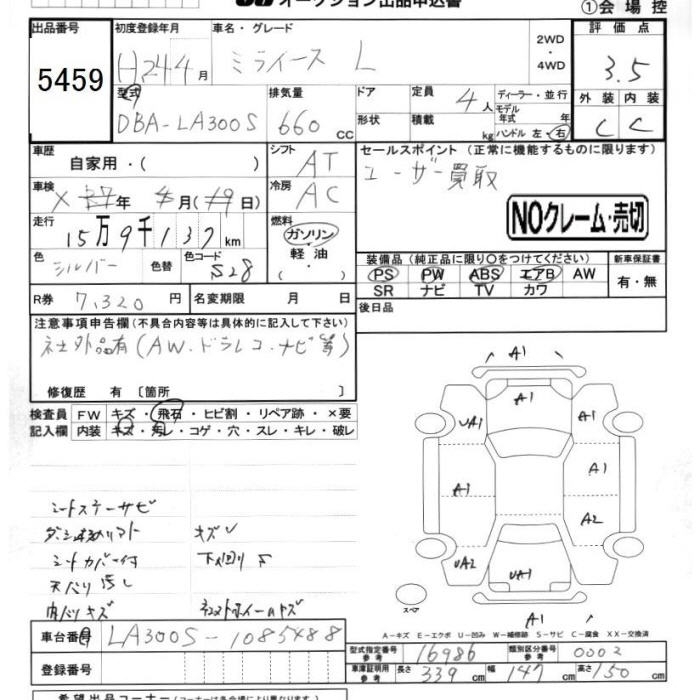 オークション出品申込書
①会場控
出品番号 初度登録年月 車名・グレード 2WD・4WD 評価点
5459 H24 4月 ミライース L 3.5
型式 排気量 ドア 定員 4人 ディーラー・並行 外装 内装
DBA-LA300S 660cc 形状 積載 kg モデル年式 年 ハンドル 左・右 C C
車歴 自家用・( ) シフト AT セールスポイント (正常に機能するものに限ります)
車検 年 月(19日) 冷房 AC ユーザー買取
走行 15万9千137km 燃料 ガソリン・軽油・( ) NOクレーム・売切
色 シルバー 色替 色コード S28
装備品(純正品に限り○をつけてください) 新車保証書
PS PW ABS エアB AW 有・無
SR ナビ TV カワ
R券 7,320円 名変期限 月 日 後日品
注意事項申告欄(不具合内容等は具体的に記入して下さい)
社外品有(AW.ドラレコ.ナビ等)
修復歴 有 〔箇所 〕
検査員 FW キズ・飛石・ヒビ割・リペア跡・×要
記入欄 内装 キズ・汚レ・コゲ・穴・スレ・キレ・破レ
A1
A1
UA1 A1
A1 A1
A2
UA2
UA1
A1
スペア
シートステーサビ
キズ
シートカバー付 下回りS
天バリ汚し
内バリキズ
A-キズ E-エクボ U-凹み W-補修跡 S-サビ C-腐食 XX-交換済
車台番号 LA300S-1085488
登録番号
型式指定番号 参考 16986 類別区分番号 参考 0002
車庫証明用 参考 長さ 339cm 幅 147cm 高さ 150cm
希望出品コーナー